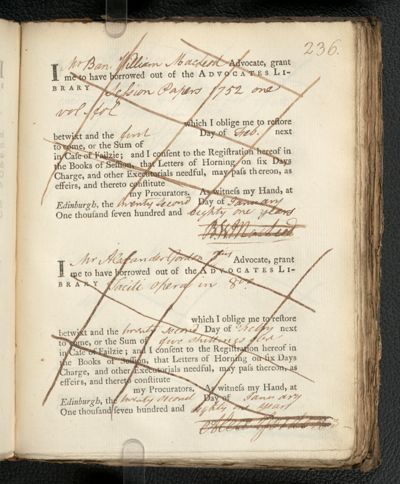 236.
I Mr Ban. William Macleod Advocate, grant
me to have borrowed out of the ADVOCATES LI-
BRARY Session Papers 1752 one
vol. fol
which I oblige me to restore
betwixt and the first Day of Feb. next
to come, or the Sum of
in Case of Failzie; and I consent to the Registration hereof in
the Books of Session, that Letters of Horning on six Days
Charge, and other Executorials needful, may pass thereon, as
effeirs, and thereto constitute
my Procurators. As witness my Hand, at
Edinburgh, the twenty second Day of January
One thousand seven hundred and eighty one years
Macleod
I Mr Alexander Gordon Advocate, grant
me to have borrowed out of the ADVOCATES LI-
BRARY Taciti opera in 8vo.
which I oblige me to restore
betwixt and the twenty second Day of next
to come, or the Sum of five shillings
in Case of Failzie; and I consent to the Registration hereof in
the Books of Session, that Letters of Horning on six Days
Charge, and other Executorials needful, may pass thereon, as
effeirs, and thereto constitute
my Procurators. As witness my Hand, at
Edinburgh, the twenty second Day of January
One thousand seven hundred and eighty one years
Alexr Gordon